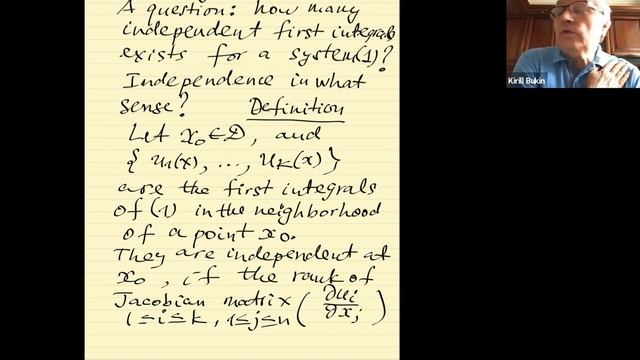 A question: how many
independent first integrals
exists for a system(1)?
Independence in what
sense? Definition
Let x₀∈D, and
{ u₁(x), ..., uₖ(x) }
are the first integrals
of (1) in the neighborhood
of a point x₀.
They are independent at
x₀, if the rank of
Jacobian matrix (∂uᵢ/∂xⱼ)
1≤i≤k, 1≤j≤n
Kirill Bukin